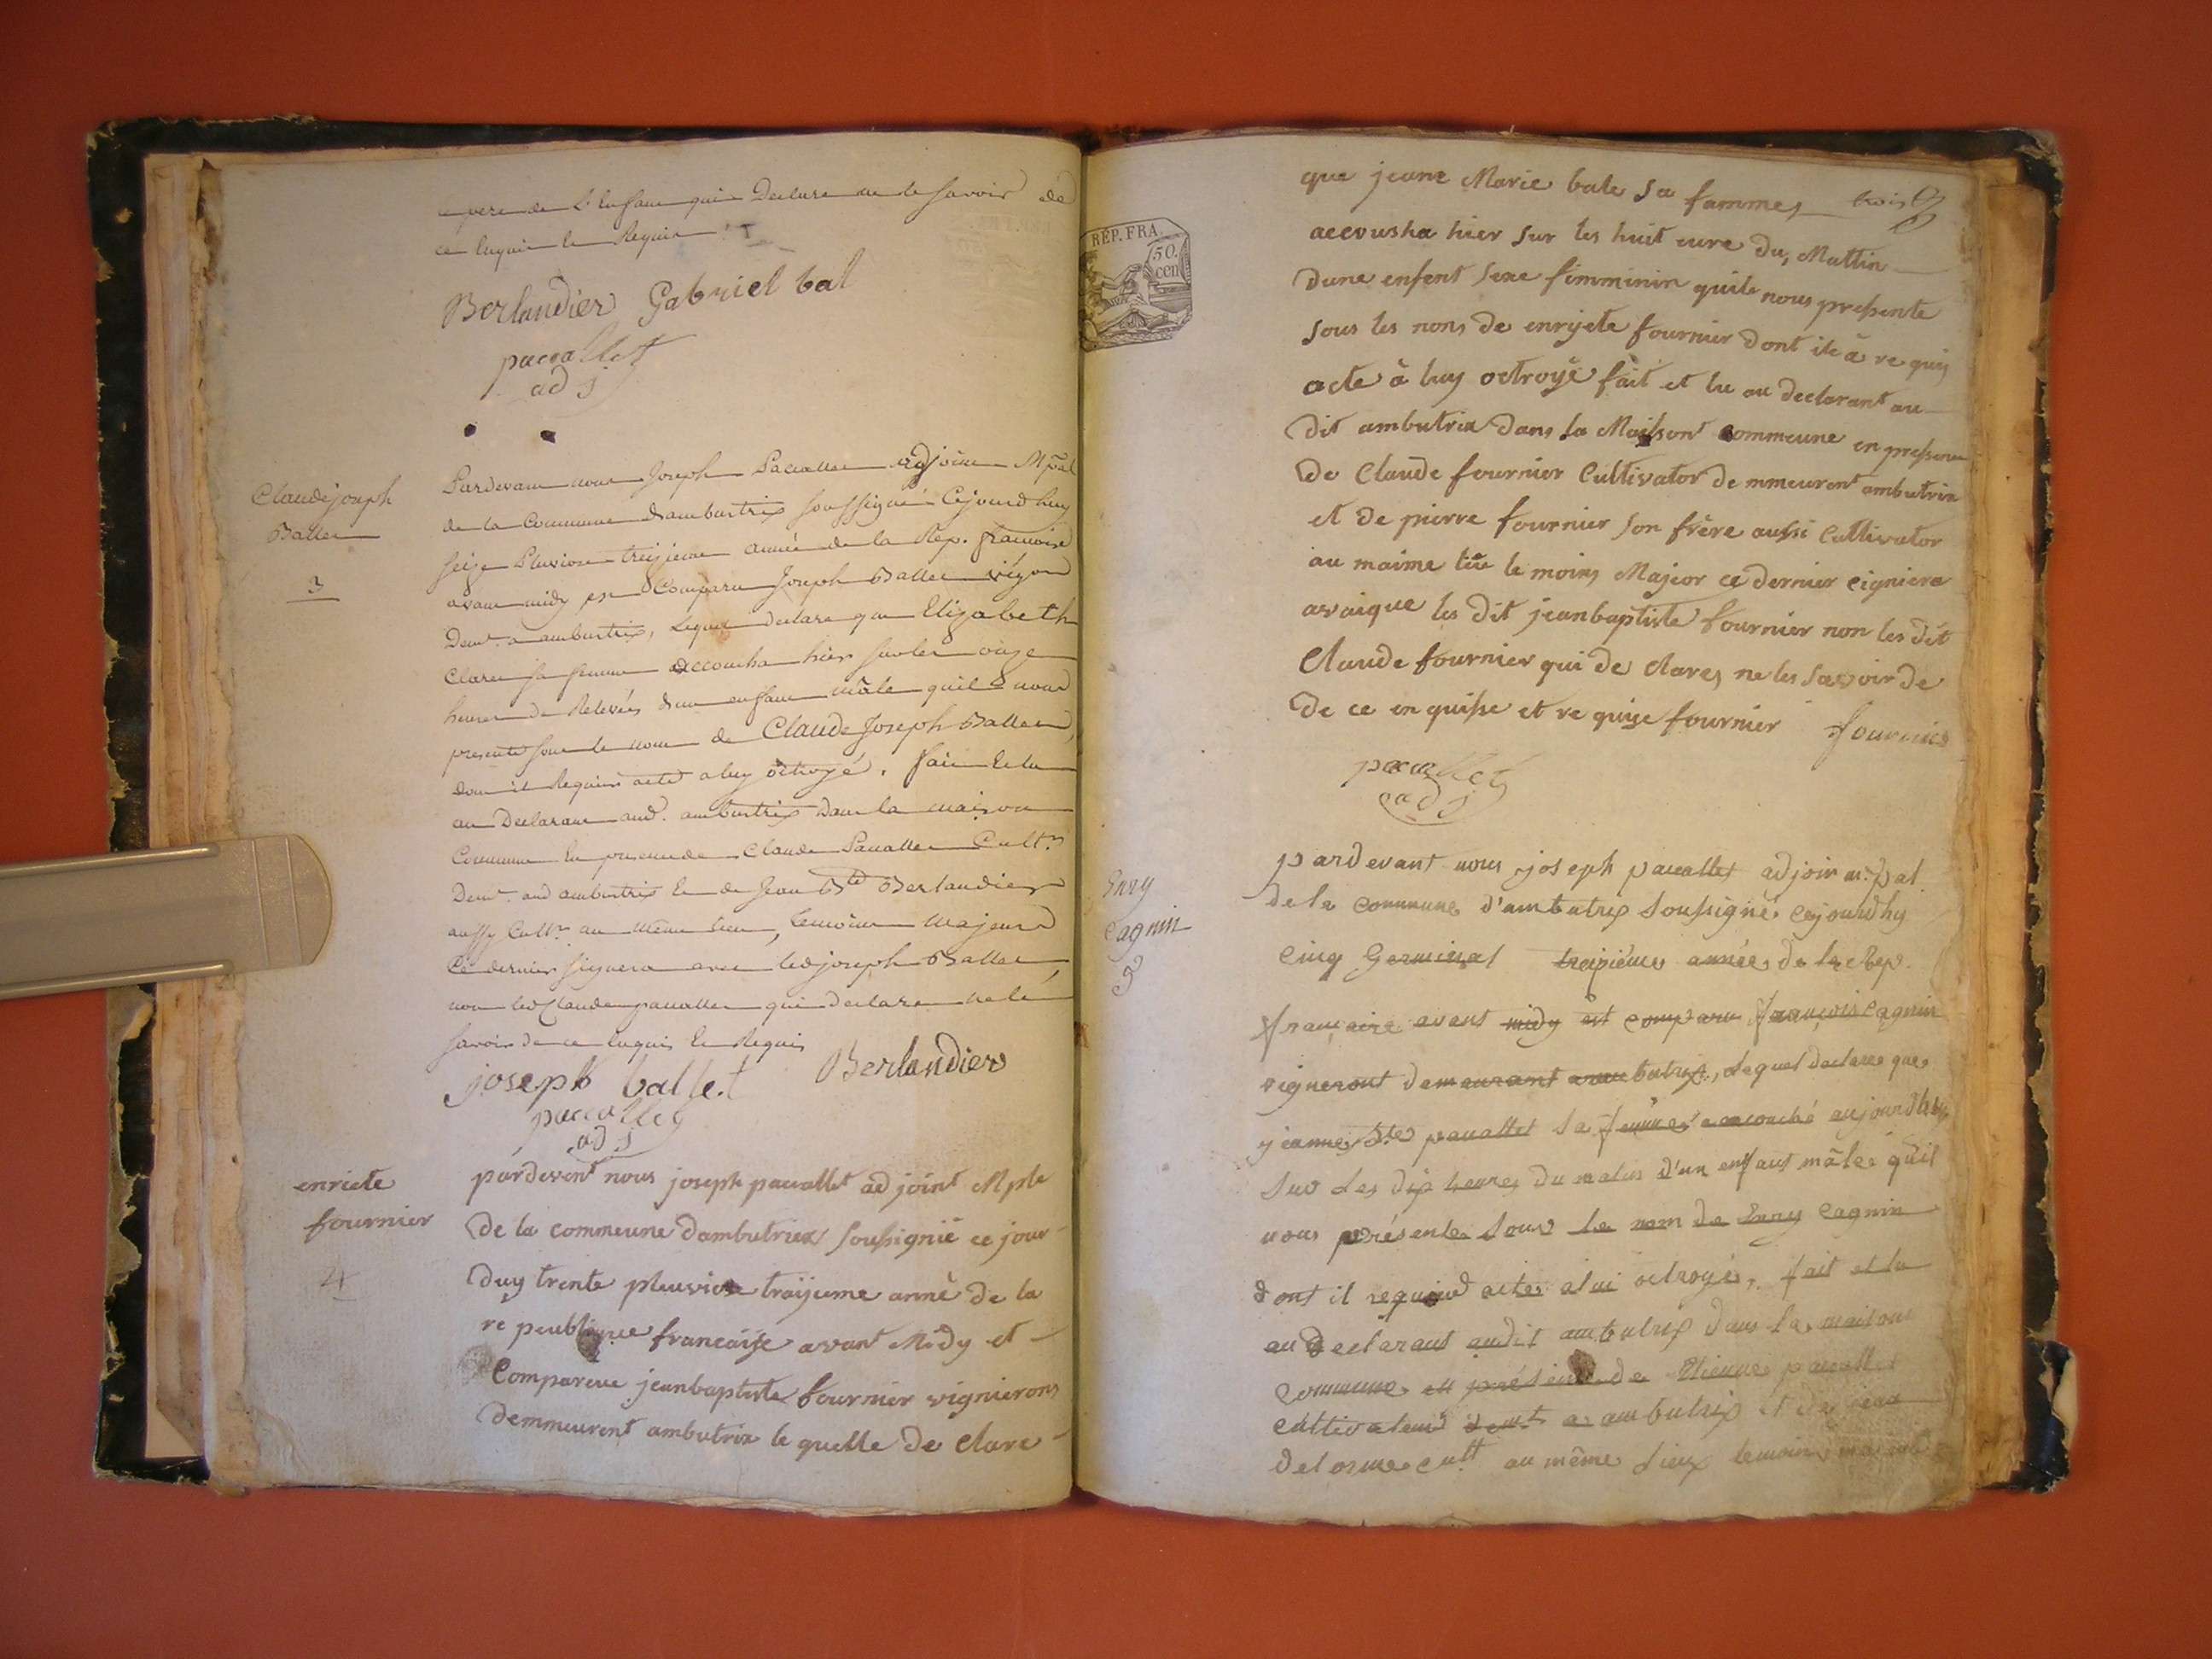 pere de L'Enfant qui Declare ne le savoir de
ce Enquis et Requis
Berlandier Gabriel bal
pacallet
adj
Claude joseph
Ballet
3
Pardevant nous Joseph Pacallet adjoint Mpāl
de la Commune d'ambutrix soussigné Cejourdhuy
seize Pluviose treizieme année de la Rep. francoise
avant midy est Comparu Joseph Ballet vigon
Demt. a ambutrix, Lequel declare que Elizabeth
Claret sa femme accoucha hier sur les onze
heures de Relevées d'un enfant mâle quil nous
presente sous le nom de Claude Joseph Ballet,
dont il Requiert acte a luy octroyé. fait et lu
au Declarant aud. ambutrix dans la maison
Commune en presence de Claude Pacallet Cultr
Demt. aud ambutrix et de Jean Bte Berlandier
aussy Cultr. au même lieu, temoins Majeurs
Ce dernier signera avec led joseph Ballet,
non led Claude pacallet qui declare ne le
savoir de ce enquis et Requis
joseph ballet Berlandier
pacallet
adj
enriete
fournier
4
pardevent nous joseph pacallet adjoint Mple
De la commeune Dambutriex soussignié ce jour-
Duy trente pleuviose traijieme anné de la
re peublique francaise avant Midy et
Compareue jeanbaptiste fournier vignierons
Demmeurent ambutrix le quelle de clare-
que jeane Marie bale sa fammes trois
accousha hier sur les huit eure du, Mattin
Dune enfent sexe fimminin quile nous pressente
sous les nons de enrijete fournier Dont ile à re quis
acte à luy octroyé fait et lu au declarant au
Dit ambutrix Dans la Maisont commeune en pressence
De Claude fournier Cultivator Demmeurent ambutrix
et De pierre fournier son frère aussi Cultivator
au maime lieu te moins Majeor ce dernier cigniera
avaique les dit jeanbaptiste fournier non les dit
Claude fournier qui de clares ne les savoir de
De ce en quisse et re quise fournier fournier
pacallet
adj
RÉP. FRA.
50.
cen
Enry
Cagnin
5
pardevant nous joseph pacallet adjoin m.pal.
dela Commune d'ambutrix soussigné cejourdhy
Cinq Germinal treizième année de la Rep.
française avant midy est comparu françois Cagnin
vigneront demeurant a ambutrix, Lequel declare que
jeanne Bte pacallet sa femme a accouché aujourdhuy
sur les dix heures du matin d'un enfant mâle qu'il
nous présente sous le nom de Enry Cagnin
dont il requier acte a lui octroyé, fait et lu
au declarant audit ambutrix dans la maison
commune en présence de Etienne pacallet
Cultivateur demt a ambutrix et de jean
delorme cultr au même Lieux temoins majeur